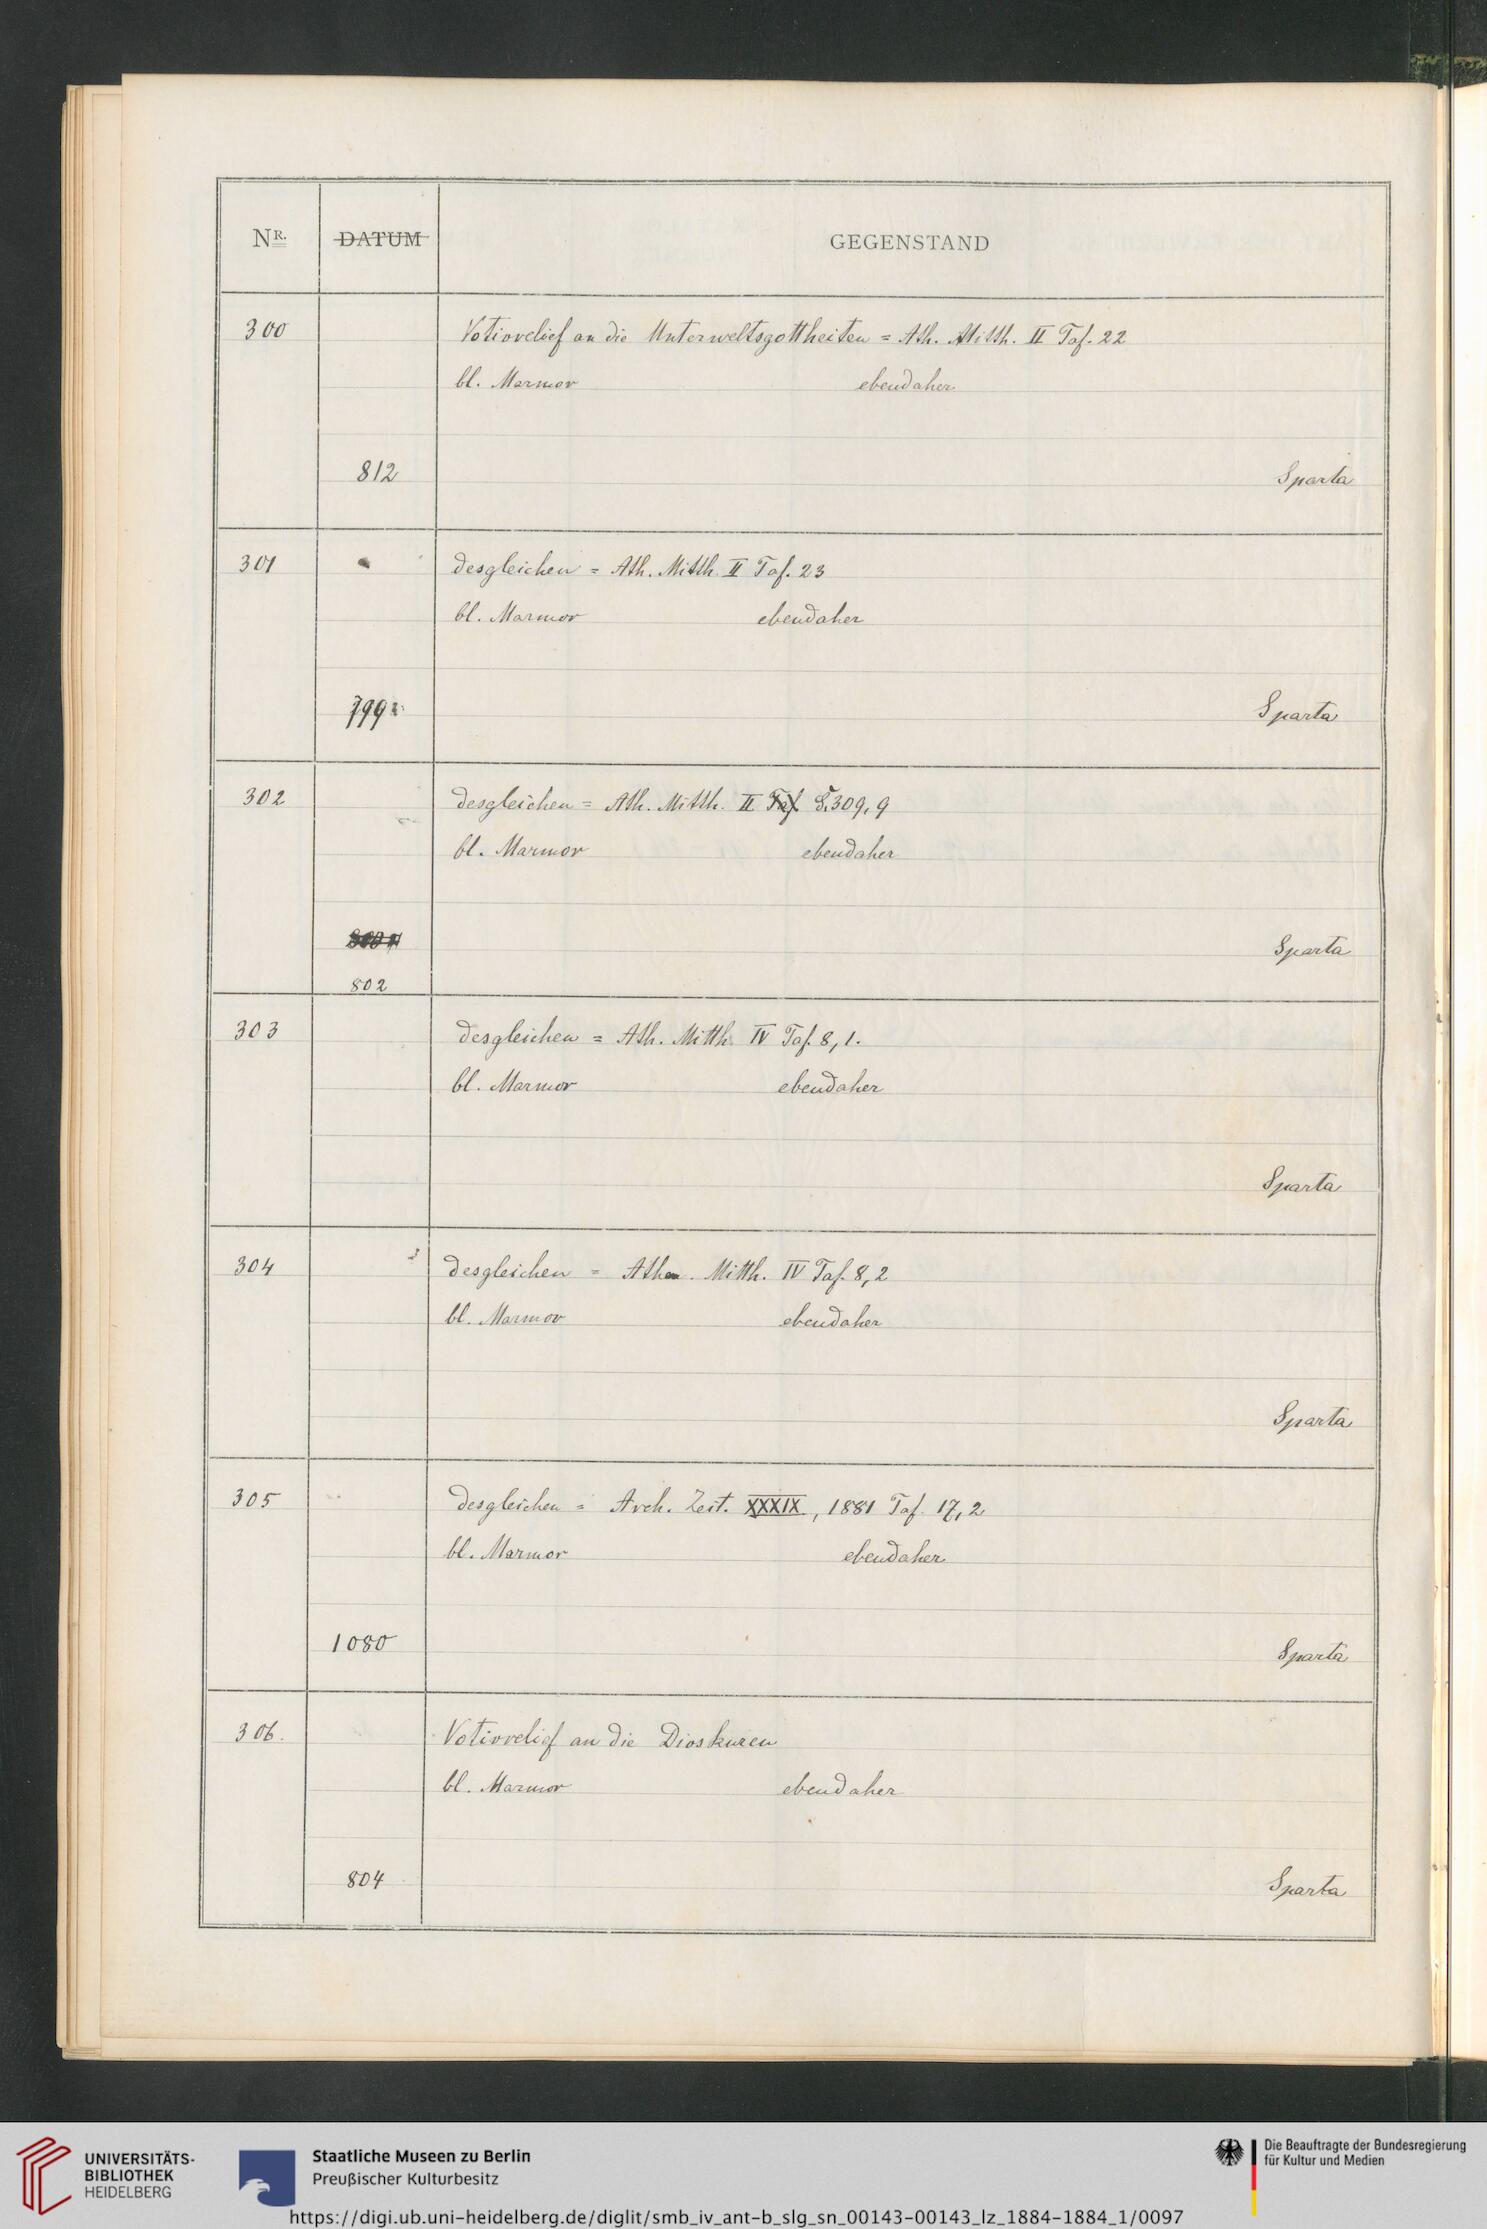 NR. DATUM GEGENSTAND
300 Votivrelief an die Unterweltsgottheiten = Ath. Mitth. II Taf. 22
bl. Marmor ebendaher
812 Sparta
301 desgleichen = Ath. Mitth. II Taf. 23
bl. Marmor ebendaher
799 Sparta
302 desgleichen = Ath. Mitth. II Taf. S. 309, 9
bl. Marmor ebendaher
Sparta
802
303 desgleichen = Ath. Mitth. IV Taf. 8, 1.
bl. Marmor ebendaher
Sparta
304 desgleichen = Athen. Mitth. IV Taf. 8, 2
bl. Marmor ebendaher
Sparta
305 desgleichen = Arch. Zeit. XXXIX, 1881 Taf. 17, 2
bl. Marmor ebendaher
1080 Sparta
306. Votivrelief an die Dioskuren
bl. Marmor ebendaher
804 Sparta
UNIVERSITÄTS-
BIBLIOTHEK
HEIDELBERG
Staatliche Museen zu Berlin
Preußischer Kulturbesitz
Die Beauftragte der Bundesregierung
für Kultur und Medien
https://digi.ub.uni-heidelberg.de/diglit/smb_iv_ant-b_slg_sn_00143-00143_lz_1884-1884_1/0097